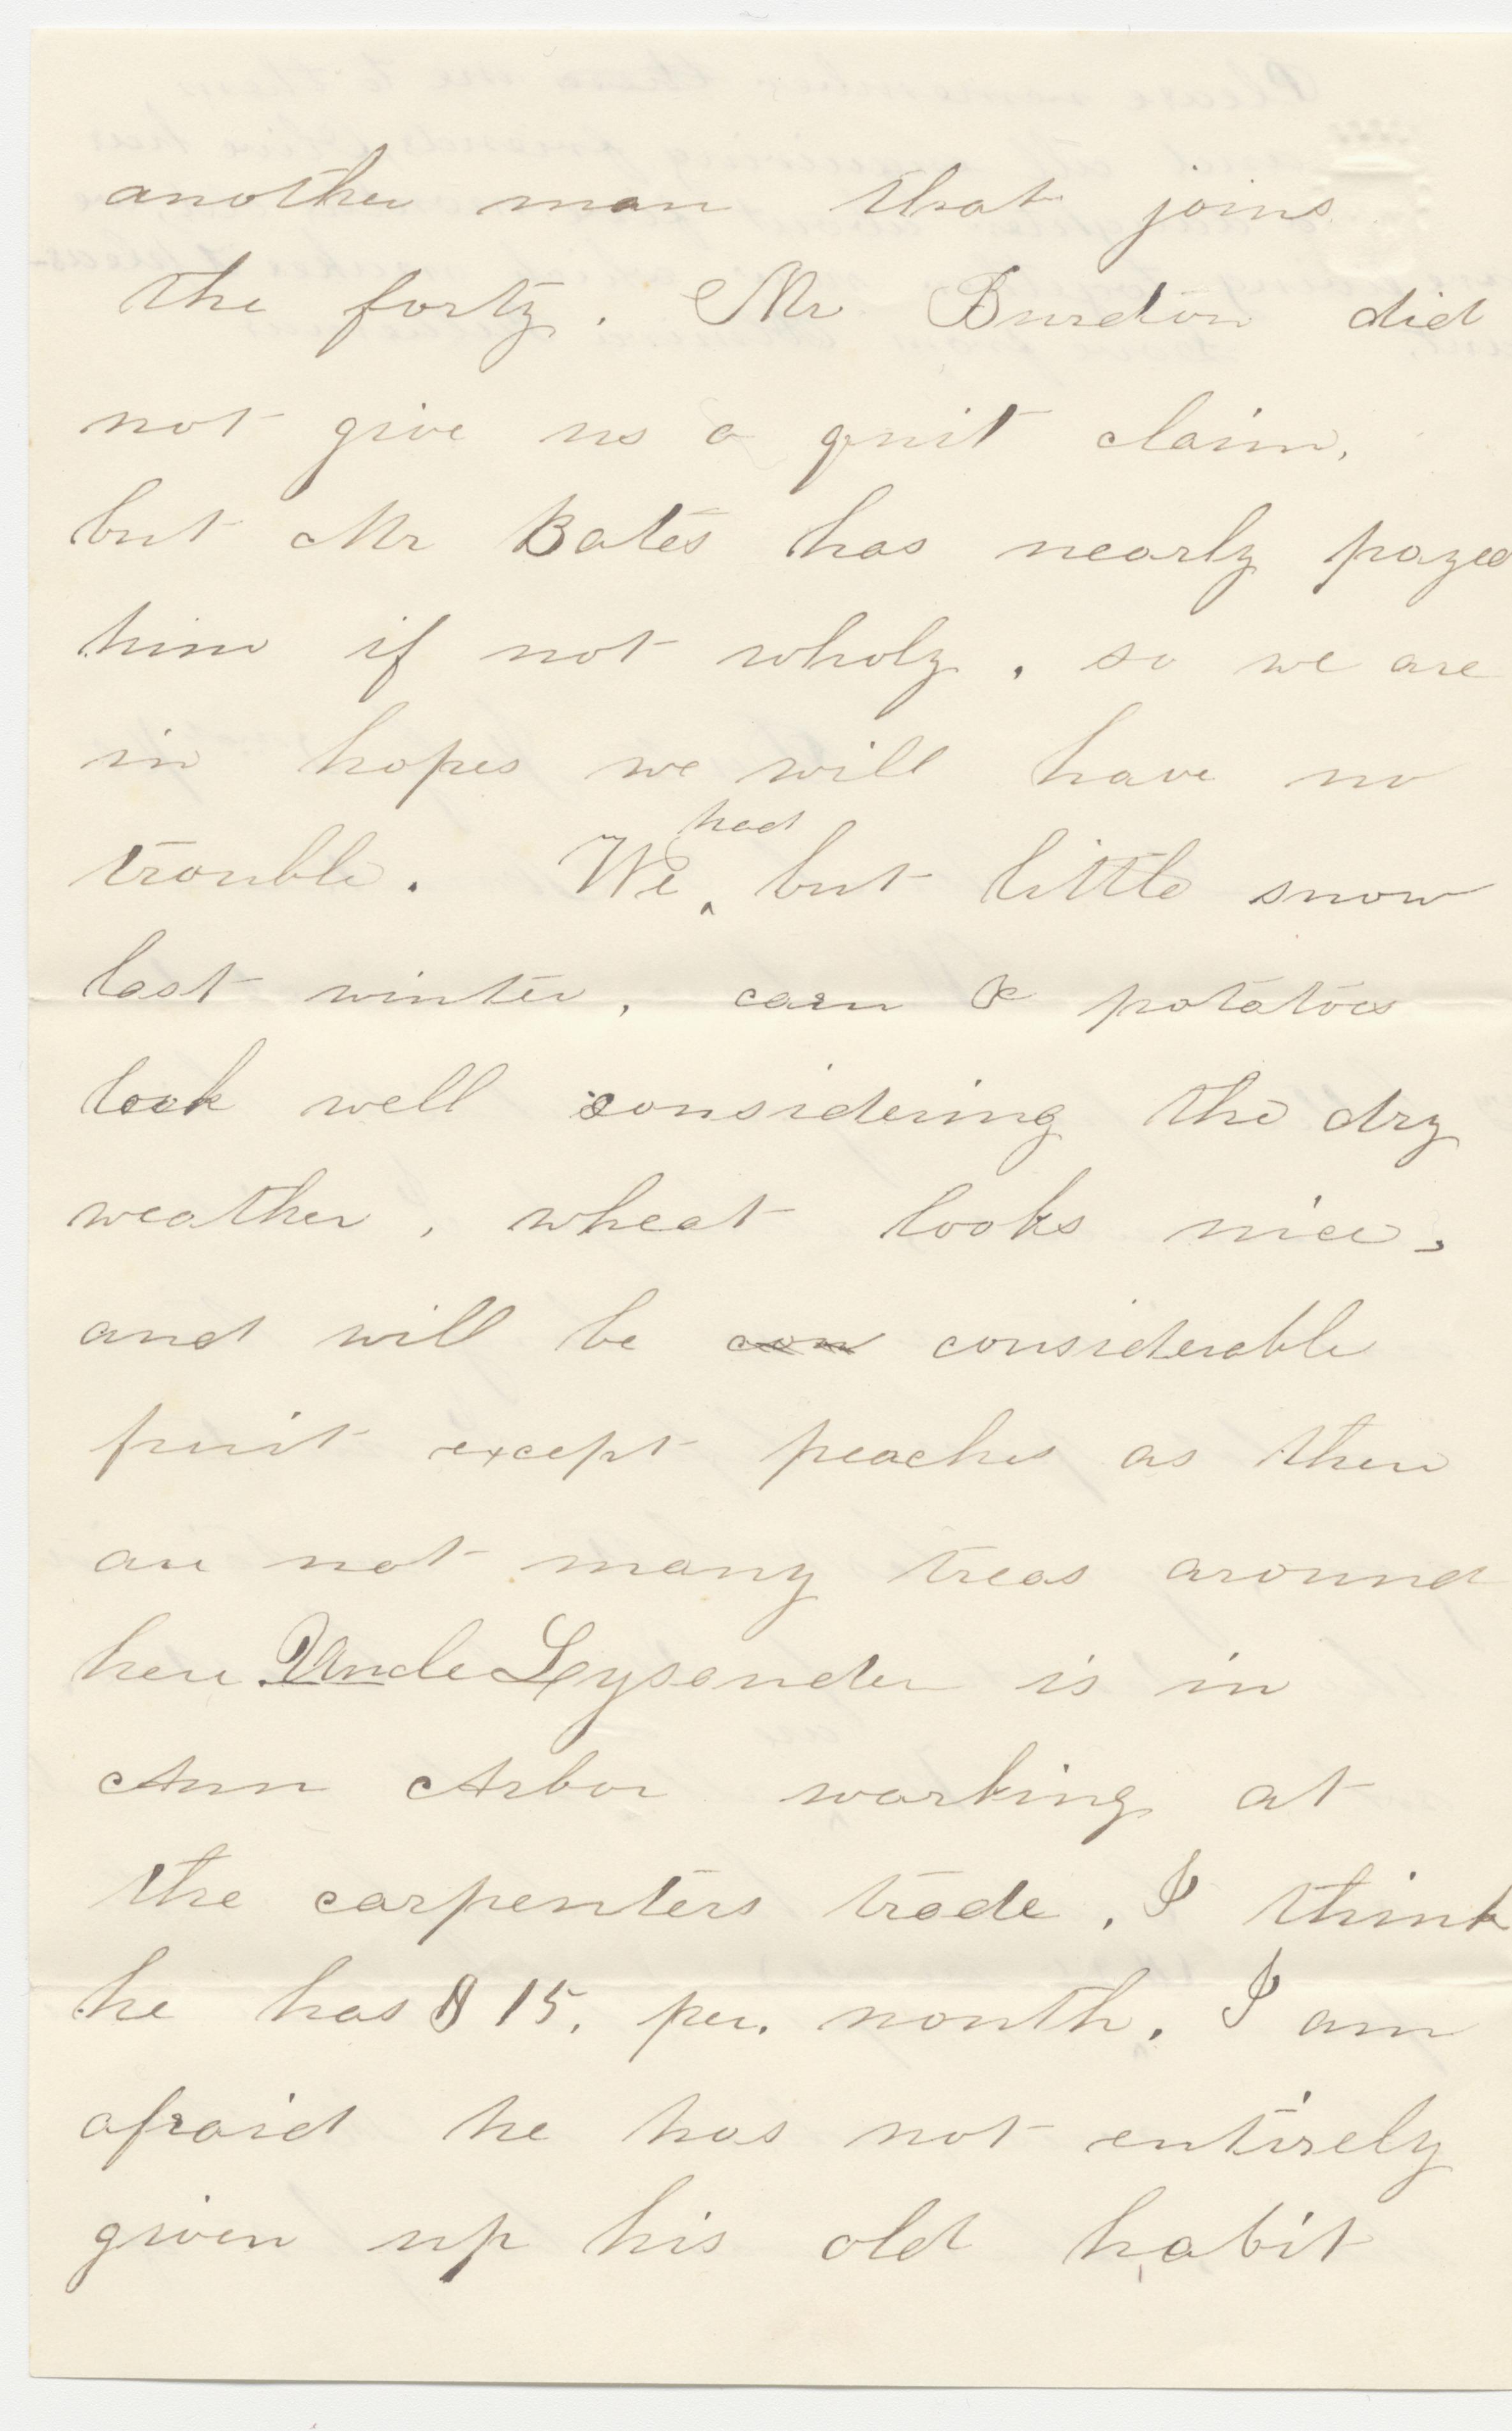 another man that joins
the forty. Mr Burdon did
not give us a quit claim,
but Mr Bates has nearly payed
him if not wholy, so we are
in hopes we will have no
trouble. We had but little snow
last winter, corn & potatoes
look well considering the dry
weather, wheat looks nice,
and will be con considerable
fruit except peaches as there
are not many treas around
here. Uncle Leysander is in
Ann Arbor working at
the carpenters trade, I think
he has $15. per. month. I am
afraid he has not entirely
given up his old habit